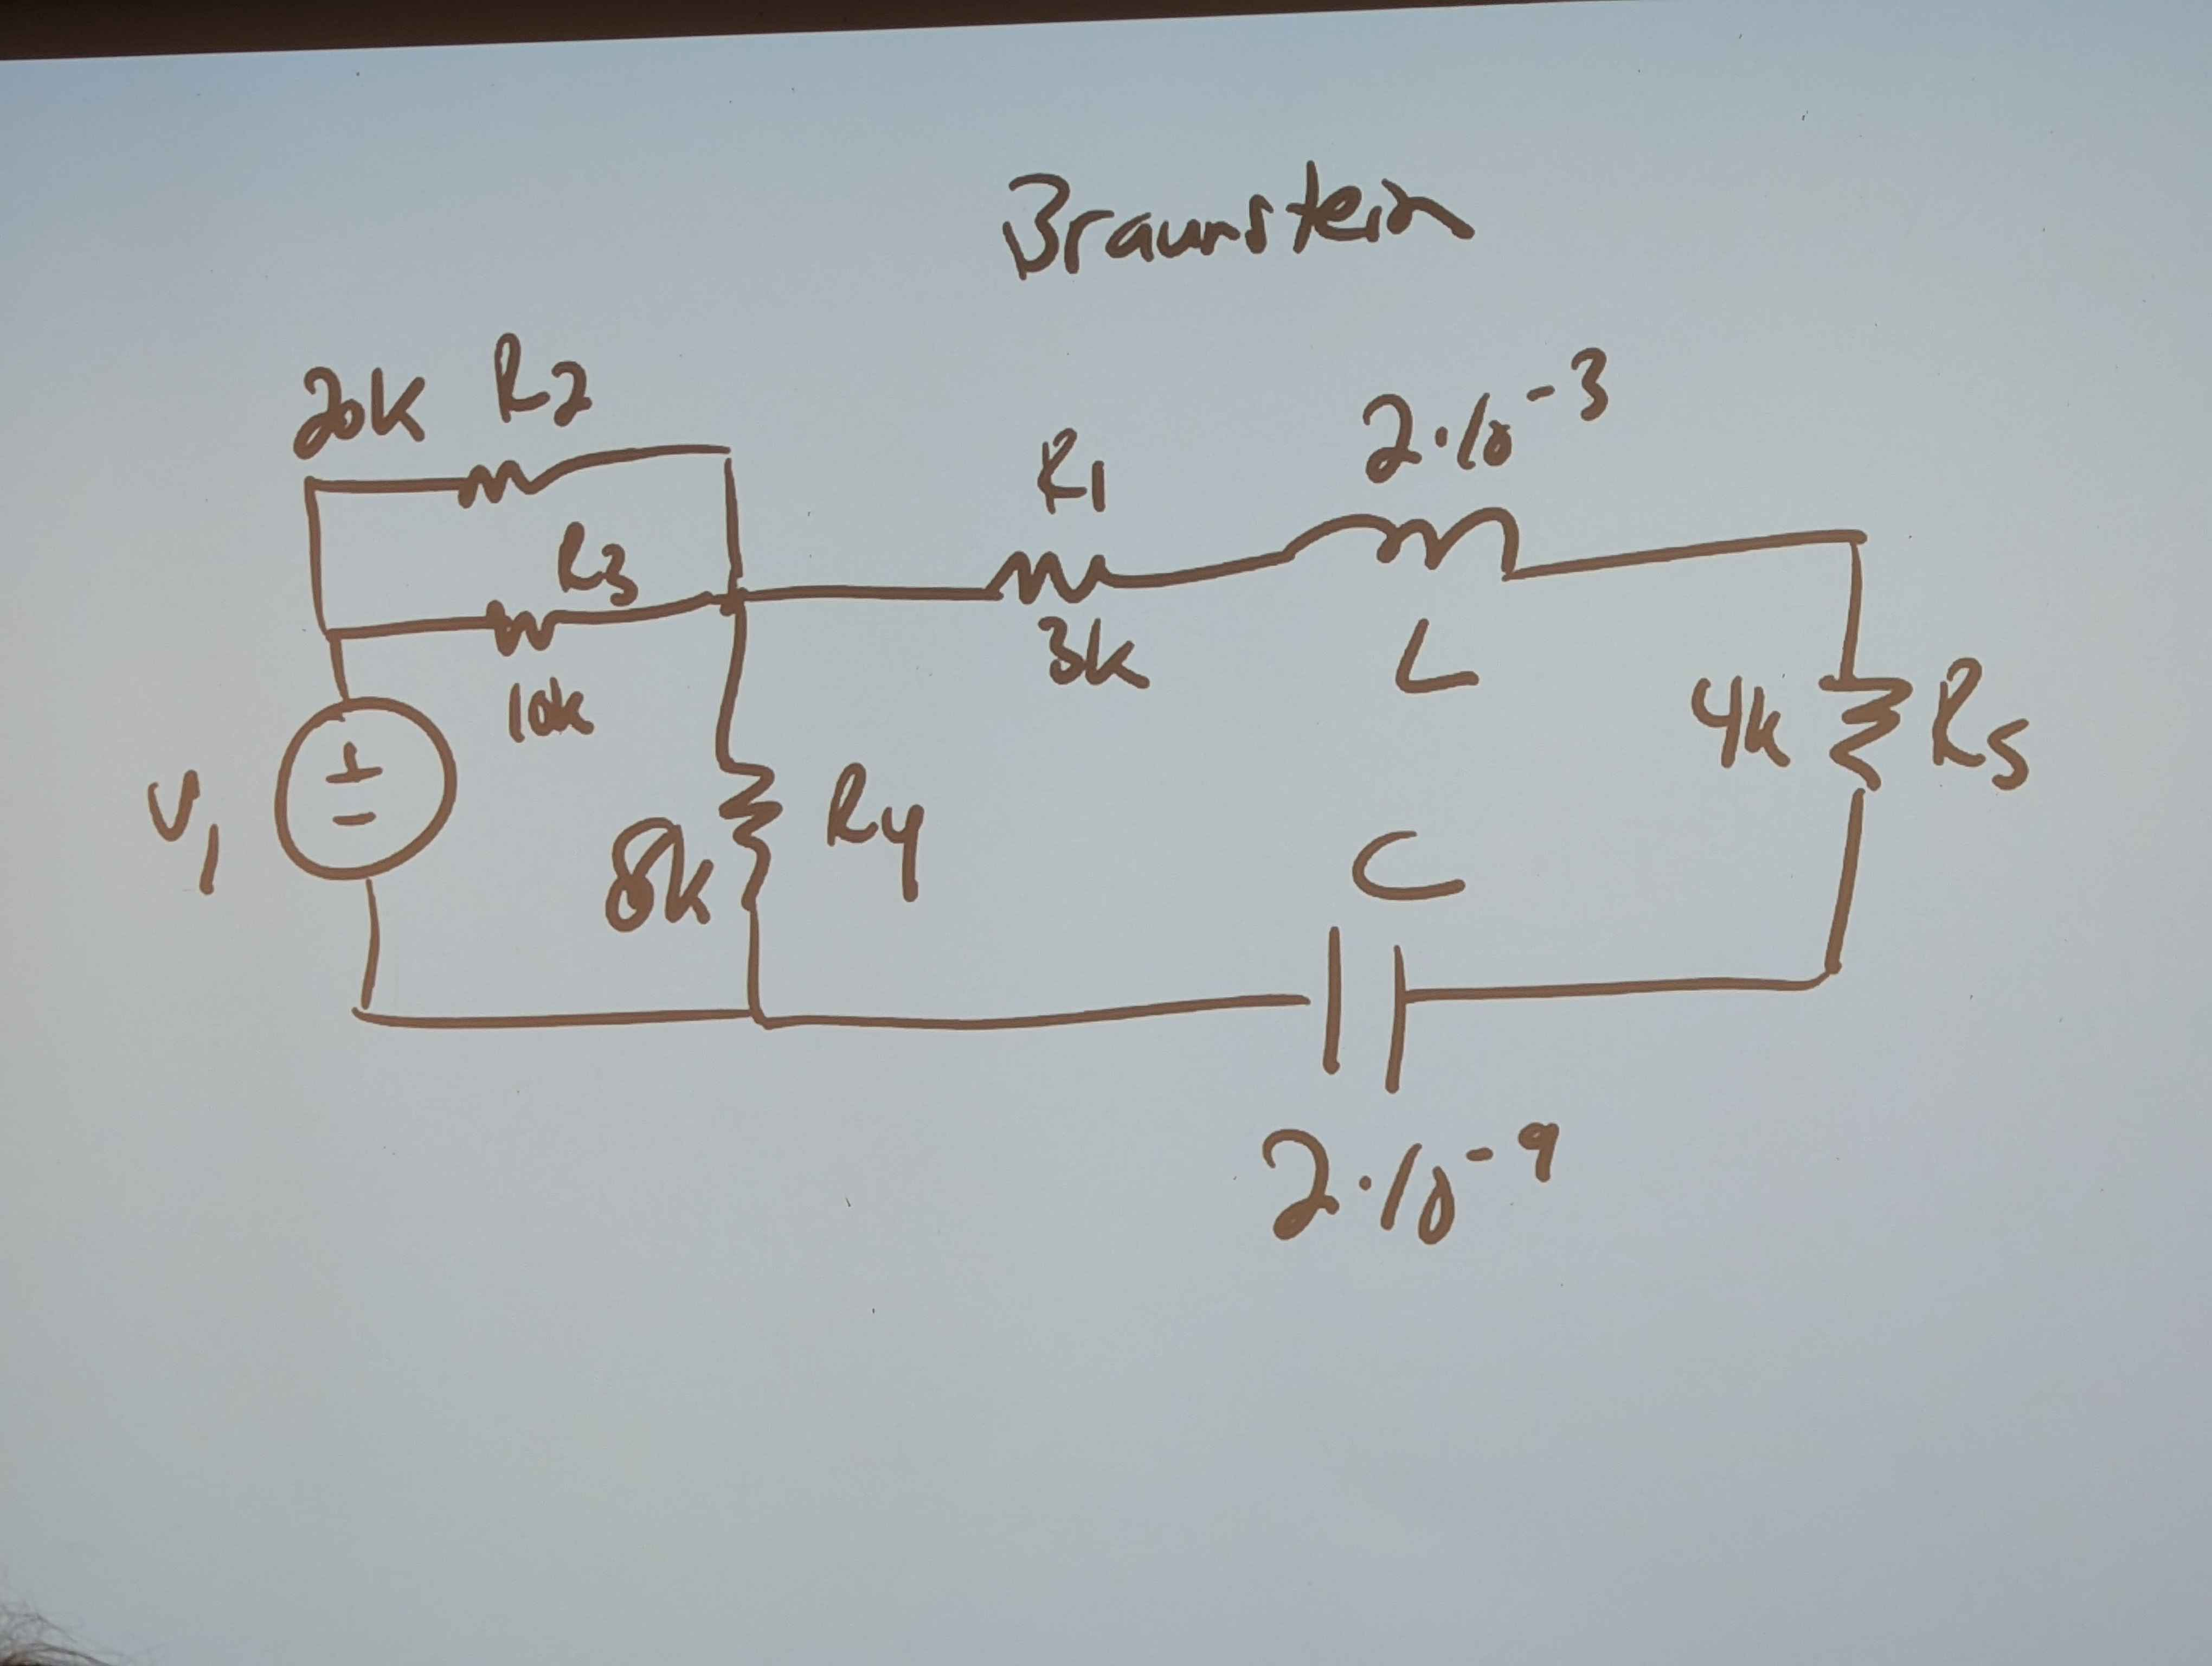 Braunstein
20k R2
R1
2·10⁻³
R3
3k
L
10k
4k R5
V1
+
-
8k R4
C
2·10⁻⁹